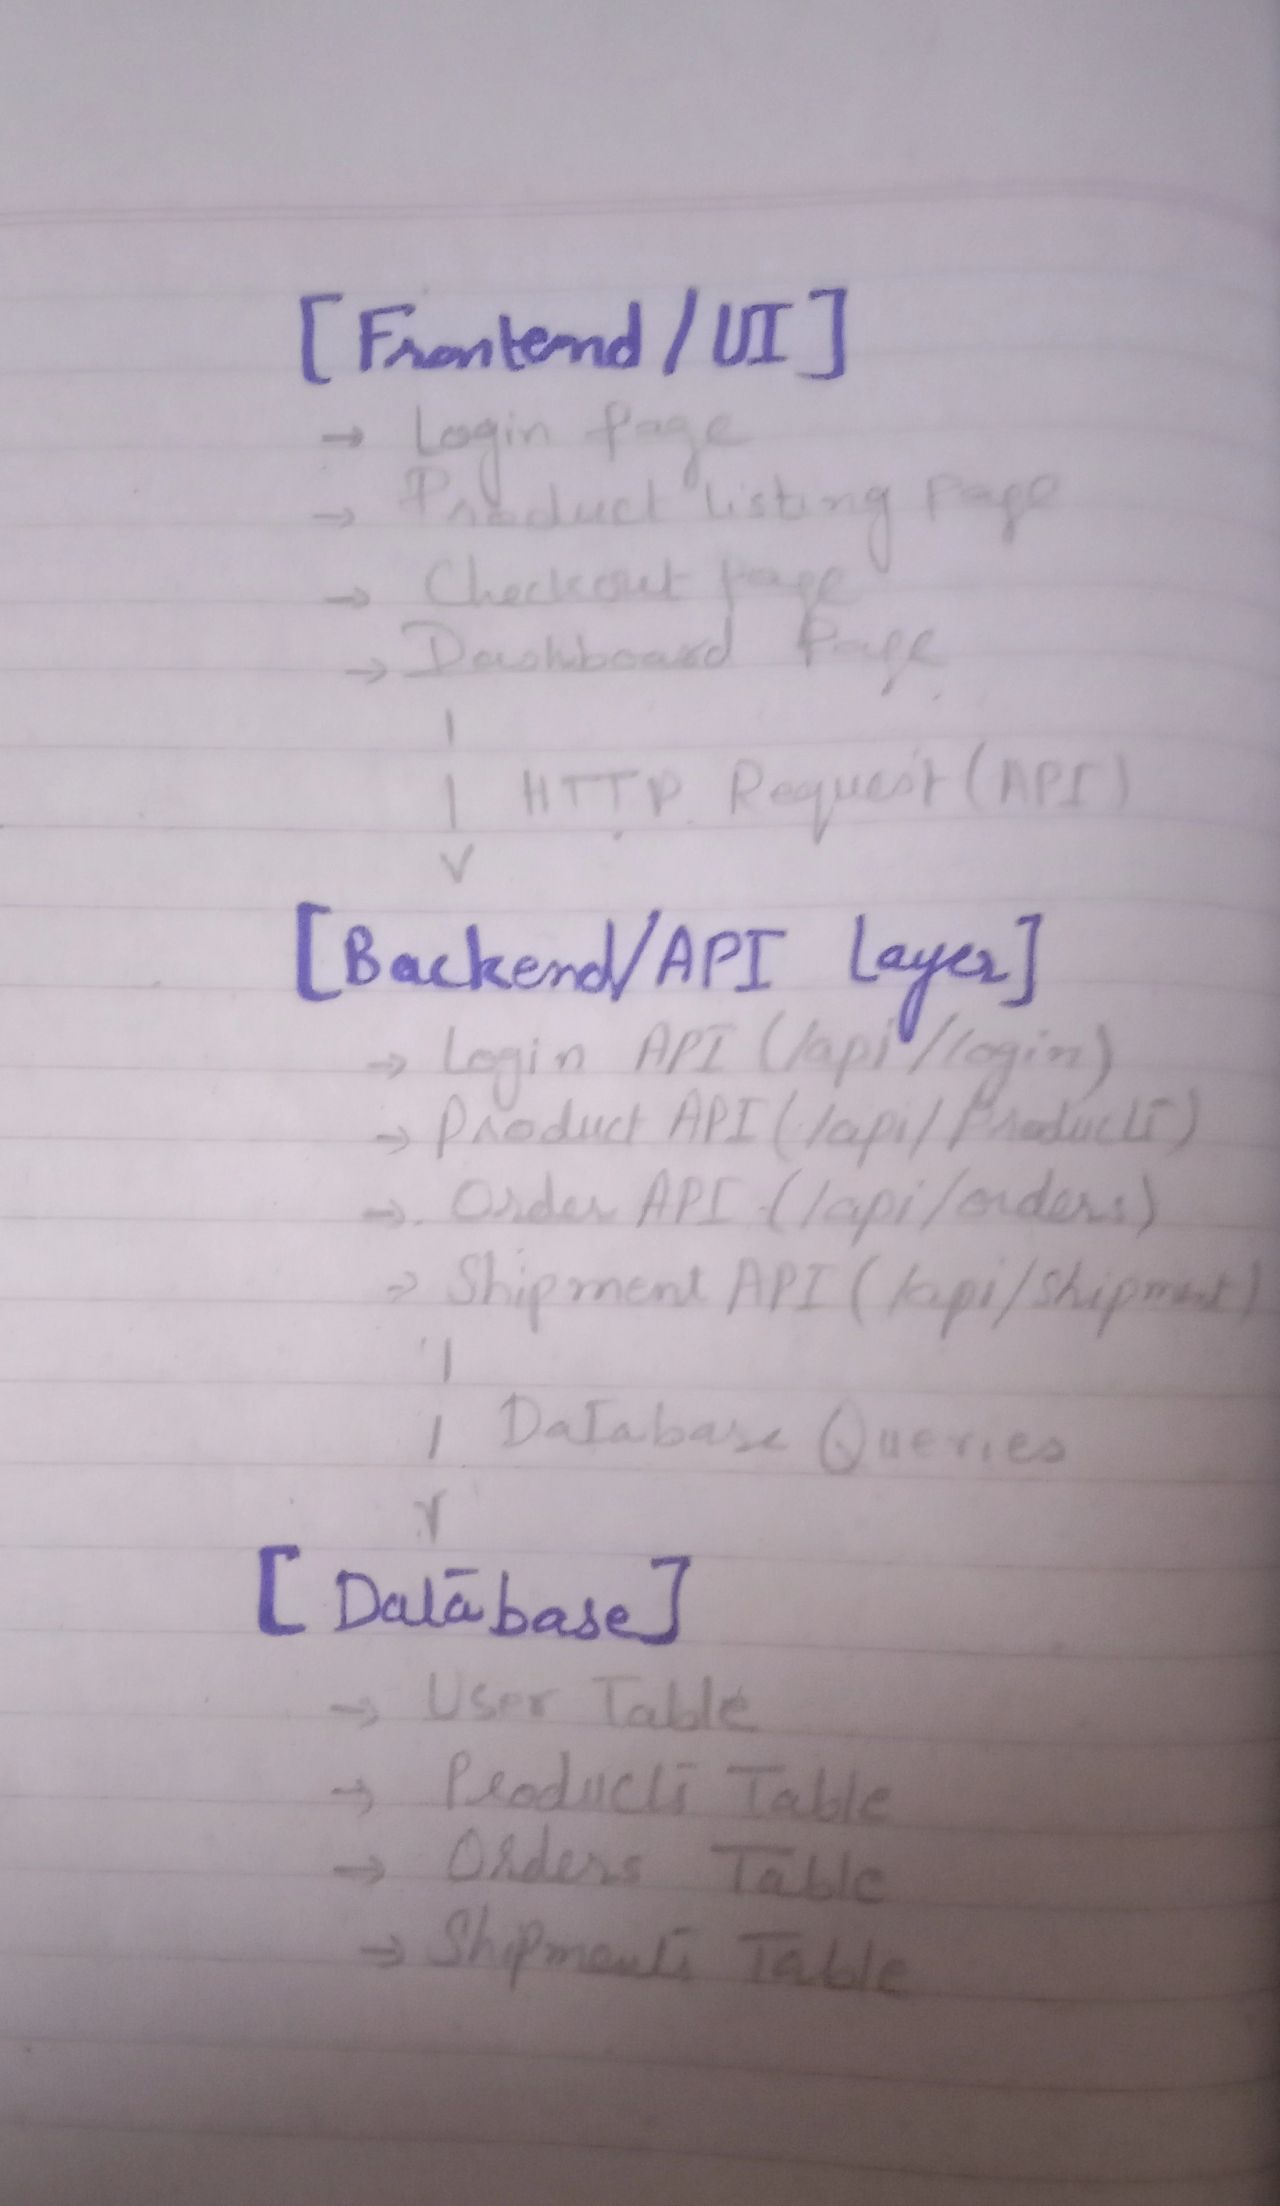 [Frontend/UI]
→ Login Page
→ Product listing Page
→ Checkout page
→ Dashboard Page
HTTP Request (API)
[Backend/API Layer]
→ Login API (/api/login)
→ Product API (/api/Products)
→ Order API (/api/orders)
→ Shipment API (/api/Shipment)
Database Queries
[Database]
→ User Table
→ Products Table
→ Orders Table
→ Shipments Table